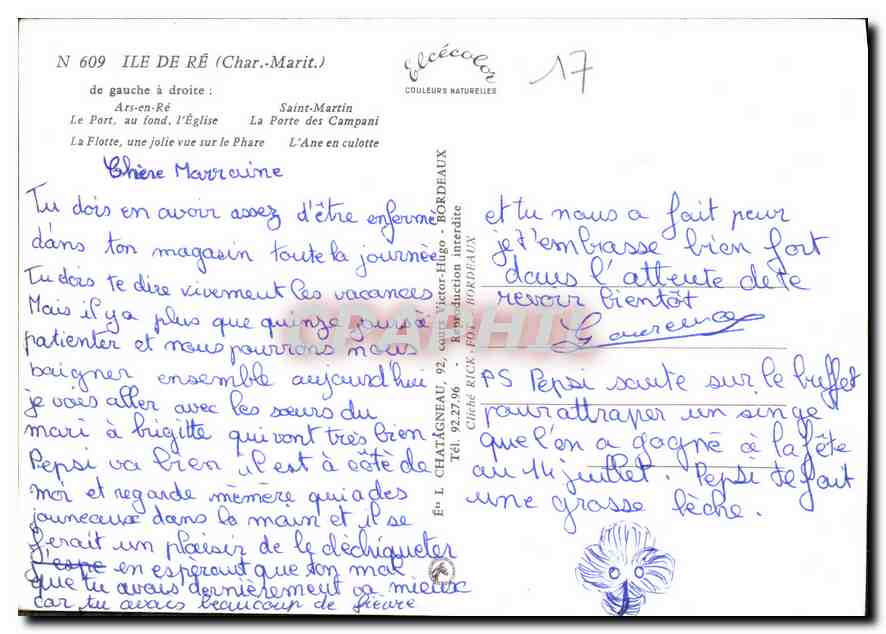 N 609 ILE DE RÉ (Char.-Marit.)
de gauche à droite :
Ars-en-Ré Saint-Martin
Le Port, au fond, l'Église La Porte des Campani
La Flotte, une jolie vue sur le Phare L'Ane en culotte
elcécolor
COULEURS NATURELLES
17
Chère Marraine
Tu dois en avoir assez d'être enfermé
dans ton magasin toute la journée
Tu dois te dire vivement les vacances
Mais il y a plus que quinze jours à
patienter et nous pourrons nous
baigner ensemble aujourd'hui
je vois aller avec les sœurs du
mari à brigitte qui vont très bien
Pepsi va bien il est à côté de
moi et regarde mémère qui a des
jouneaux dans la main et il se
ferait un plaisir de le déchiqueter
J'espe en espérant que ton mal
que tu avais dernièrement va mieux
car tu avais beaucoup de fièvre
Én L CHATAGNEAU, 92, cours Victor-Hugo - BORDEAUX
Tél. 92.27.96 - Reproduction interdite
Cliché RICK-FOT BORDEAUX
et tu nous a fait peur
je t'embrasse bien fort
dans l'attente de te
revoir bientôt
Laurence
PS Pepsi saute sur le buffet
pour attraper un singe
que l'on a gagné à la fête
au 14 juillet. Pepsi te fait
une grosse lèche.